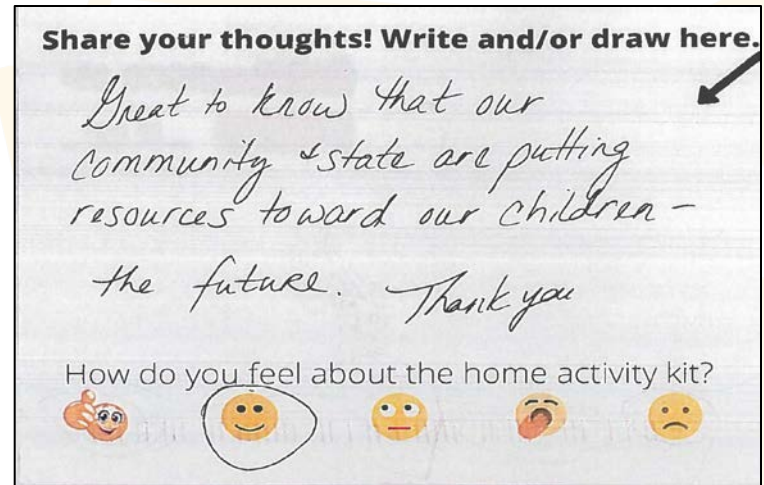 Share your thoughts! Write and/or draw here.
Great to know that our
community & state are putting
resources toward our children –
the future. Thank you
How do you feel about the home activity kit?